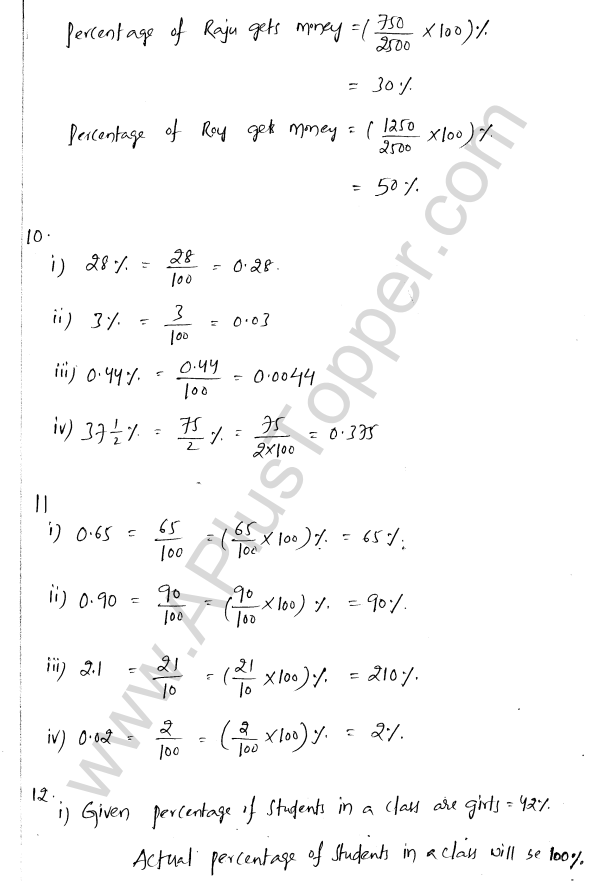 Percentage of Raju gets money = (750/2500 × 100)%
= 30%
Percentage of Roy gets money = (1250/2500 × 100)%
= 50%
10.
i) 28% = 28/100 = 0.28.
ii) 3% = 3/100 = 0.03
iii) 0.44% = 0.44/100 = 0.0044
iv) 37 1/2 % = 75/2 % = 75/2×100 = 0.375
11
i) 0.65 = 65/100 = (65/100 × 100)% = 65%.
ii) 0.90 = 90/100 = (90/100 × 100)% = 90%.
iii) 2.1 = 21/10 = (21/10 × 100)% = 210%.
iv) 0.02 = 2/100 = (2/100 × 100)% = 2%.
12.
i) Given percentage of students in a class are girls = 42%.
Actual percentage of students in a class will be 100%.
www.APlusTopper.com